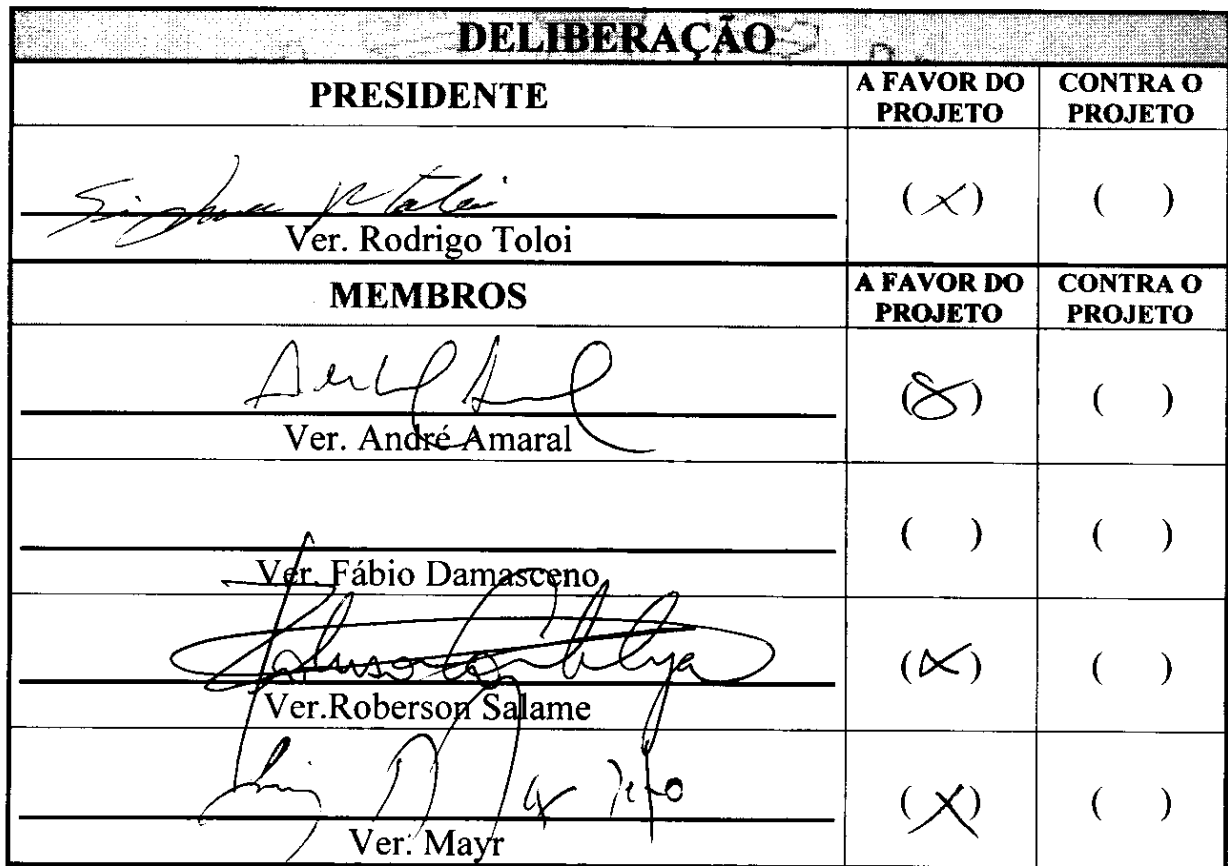 DELIBERAÇÃO
PRESIDENTE
A FAVOR DO PROJETO
CONTRA O PROJETO
(X)
( )
Ver. Rodrigo Toloi
MEMBROS
A FAVOR DO PROJETO
CONTRA O PROJETO
(X)
( )
Ver. André Amaral
( )
( )
Ver. Fábio Damasceno
(X)
( )
Ver.Roberson Salame
(X)
( )
Ver. Mayr